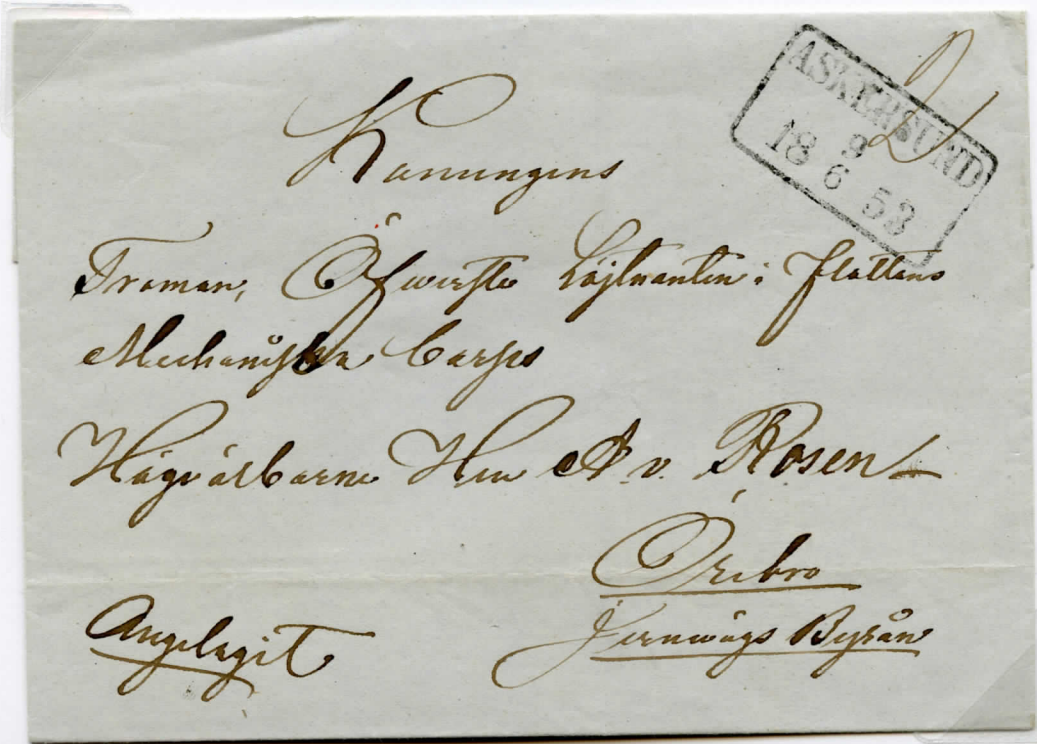 ASKERSUND
9
18 6 53
Konungens
Troman, Öfwerste Löjtnanten i Flottans
Mechaniska Corps
Högvälborne Herr A. v. Rosen
Örebro
Jernwägs Byrån
Angelägit